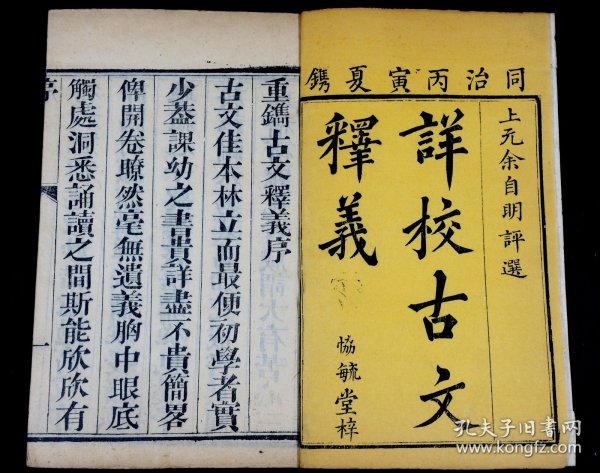 同治丙寅夏鐫
上元余自明評選
詳校古文
釋義
恊毓堂梓
重鐫古文釋義序
古文佳本林立而最便初學者實
少葢課幼之書貴詳盡不貴簡畧
俾開卷瞭然毫無遺義胸中眼底
觸處洞悉誦讀之間斯能欣欣有
序
一
孔夫子旧书网
kongfz.com